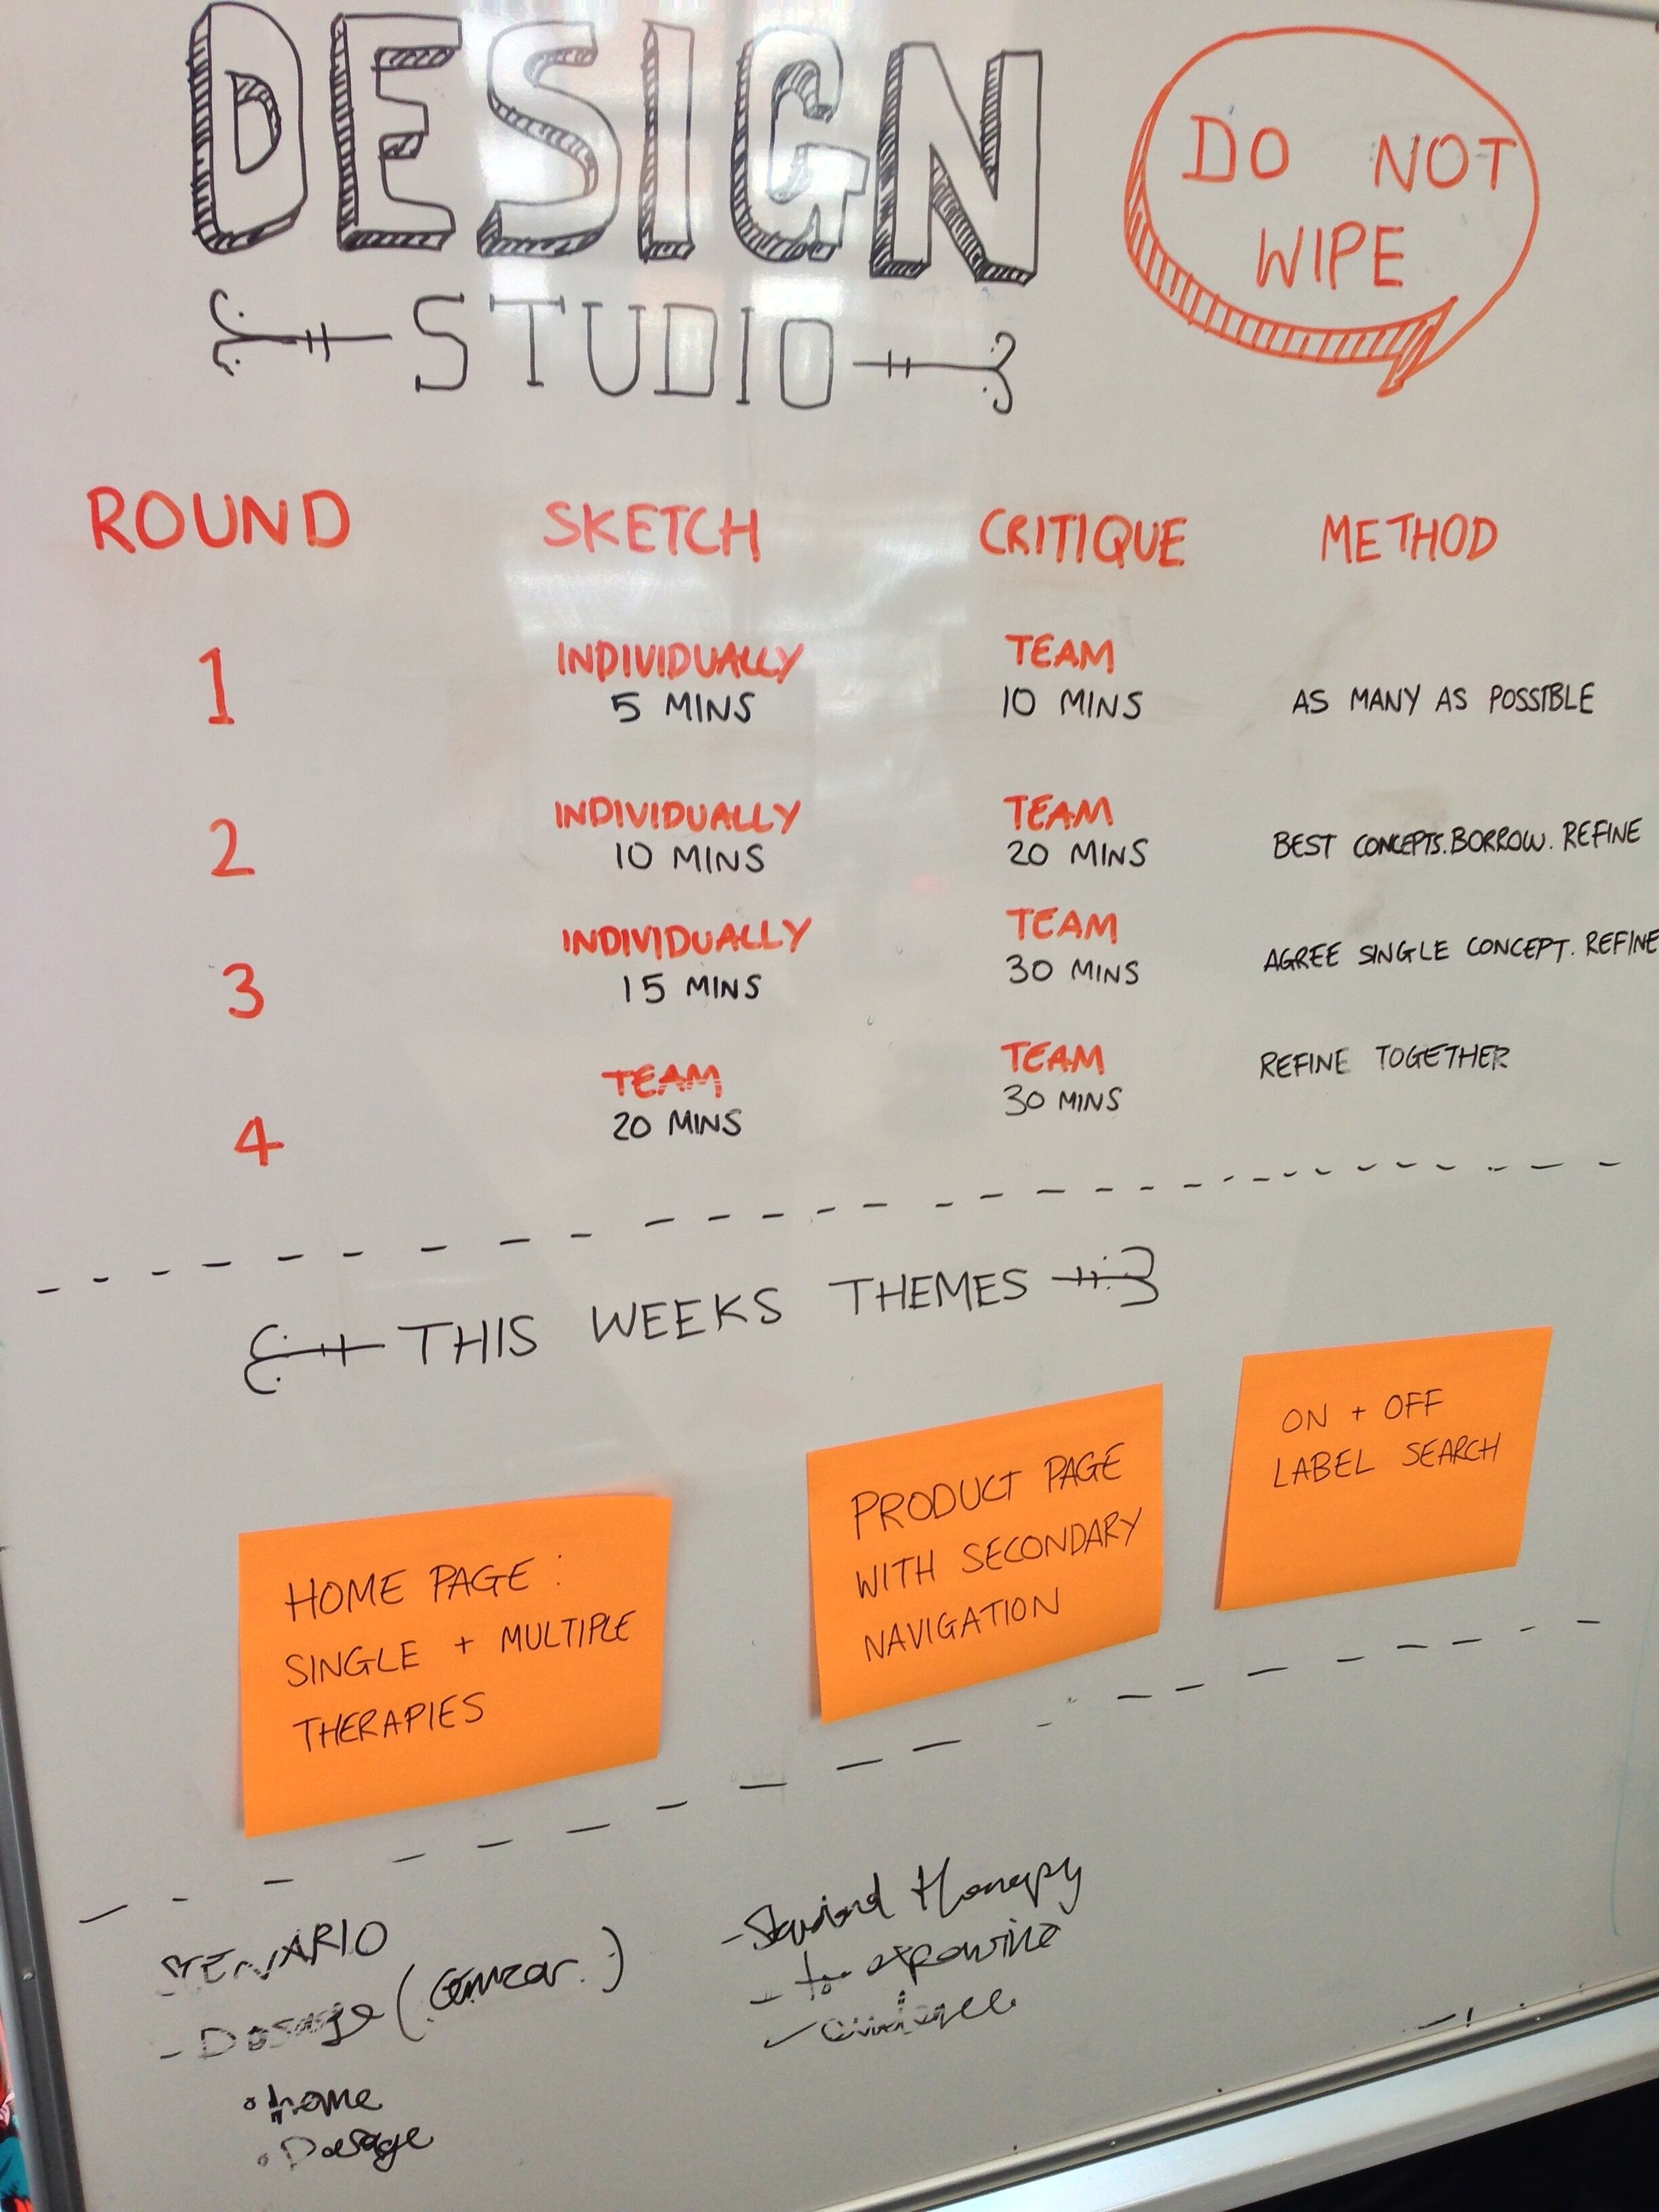 DESIGN
STUDIO
DO NOT
WIPE
ROUND SKETCH CRITIQUE METHOD
1 INDIVIDUALLY TEAM
5 MINS 10 MINS AS MANY AS POSSIBLE
2 INDIVIDUALLY TEAM
10 MINS 20 MINS BEST CONCEPTS. BORROW. REFINE
3 INDIVIDUALLY TEAM
15 MINS 30 MINS AGREE SINGLE CONCEPT. REFINE
4 TEAM TEAM
20 MINS 30 MINS REFINE TOGETHER
THIS WEEKS THEMES
HOME PAGE:
SINGLE + MULTIPLE
THERAPIES
PRODUCT PAGE
WITH SECONDARY
NAVIGATION
ON + OFF
LABEL SEARCH
SENARIO
- Dosage (Gemzar.)
• home
• Dosage
therapy
- evidence